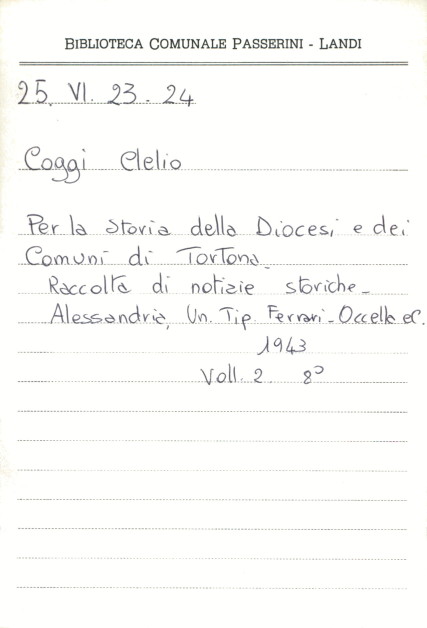 BIBLIOTECA COMUNALE PASSERINI - LANDI
25. VI. 23. 24
Coggi Clelio
Per la storia della Diocesi e dei
Comuni di Tortona.
Raccolta di notizie storiche -
Alessandria, Un. Tip. Ferrari - Occella e C.
1943
Voll. 2 8º